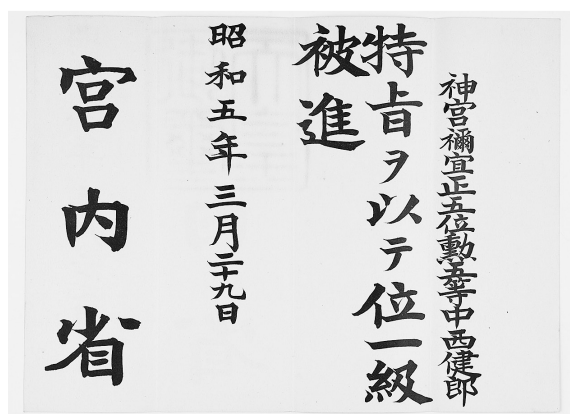 神宮禰宜正五位勲五等中西健郎
特旨ヲ以テ位一級
被進
昭和五年三月二十九日
宮内省